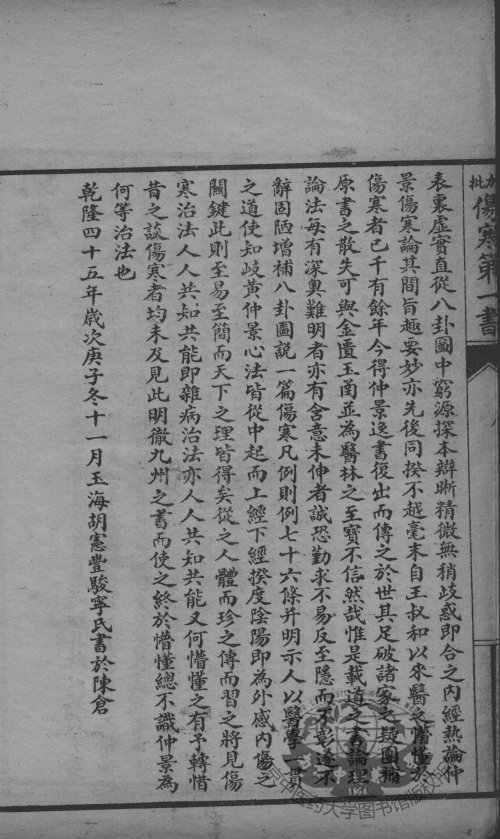 批
傷寒第一書
表裏虛實直從八卦圖中窮源探本辯晰精微無稍歧惑即合之內經熱論仲
景傷寒論其間旨趣要妙亦先後同揆不越毫末自王叔和以來醫之懵懂於
傷寒者已千有餘年今得仲景逸書復出而傳之於世其足破諸家之疑團補
原書之散失可與金匱玉函並為醫林之至寶不信然哉惟是載道之書論理
論法每有深奧難明者亦有含意未伸者誠恐勤求不易反至隱而不彰遂不
辭固陋增補八卦圖說一篇傷寒凡例則例七十六條并明示人以醫學一貫
之道使知岐黃仲景心法皆從中起而上經下經揆度陰陽即為外感內傷之
關鍵此則至易至簡而天下之理皆得矣從之人體而珍之傳而習之將見傷
寒治法人人共知共能即雜病治法亦人人共知共能又何懵懂之有予轉惜
昔之談傷寒者均未及見此明徹九州之書而使之終於懵懂總不識仲景為
何等治法也
乾隆四十五年歲次庚子冬十一月玉海胡憲豐駿寧氏書於陳倉